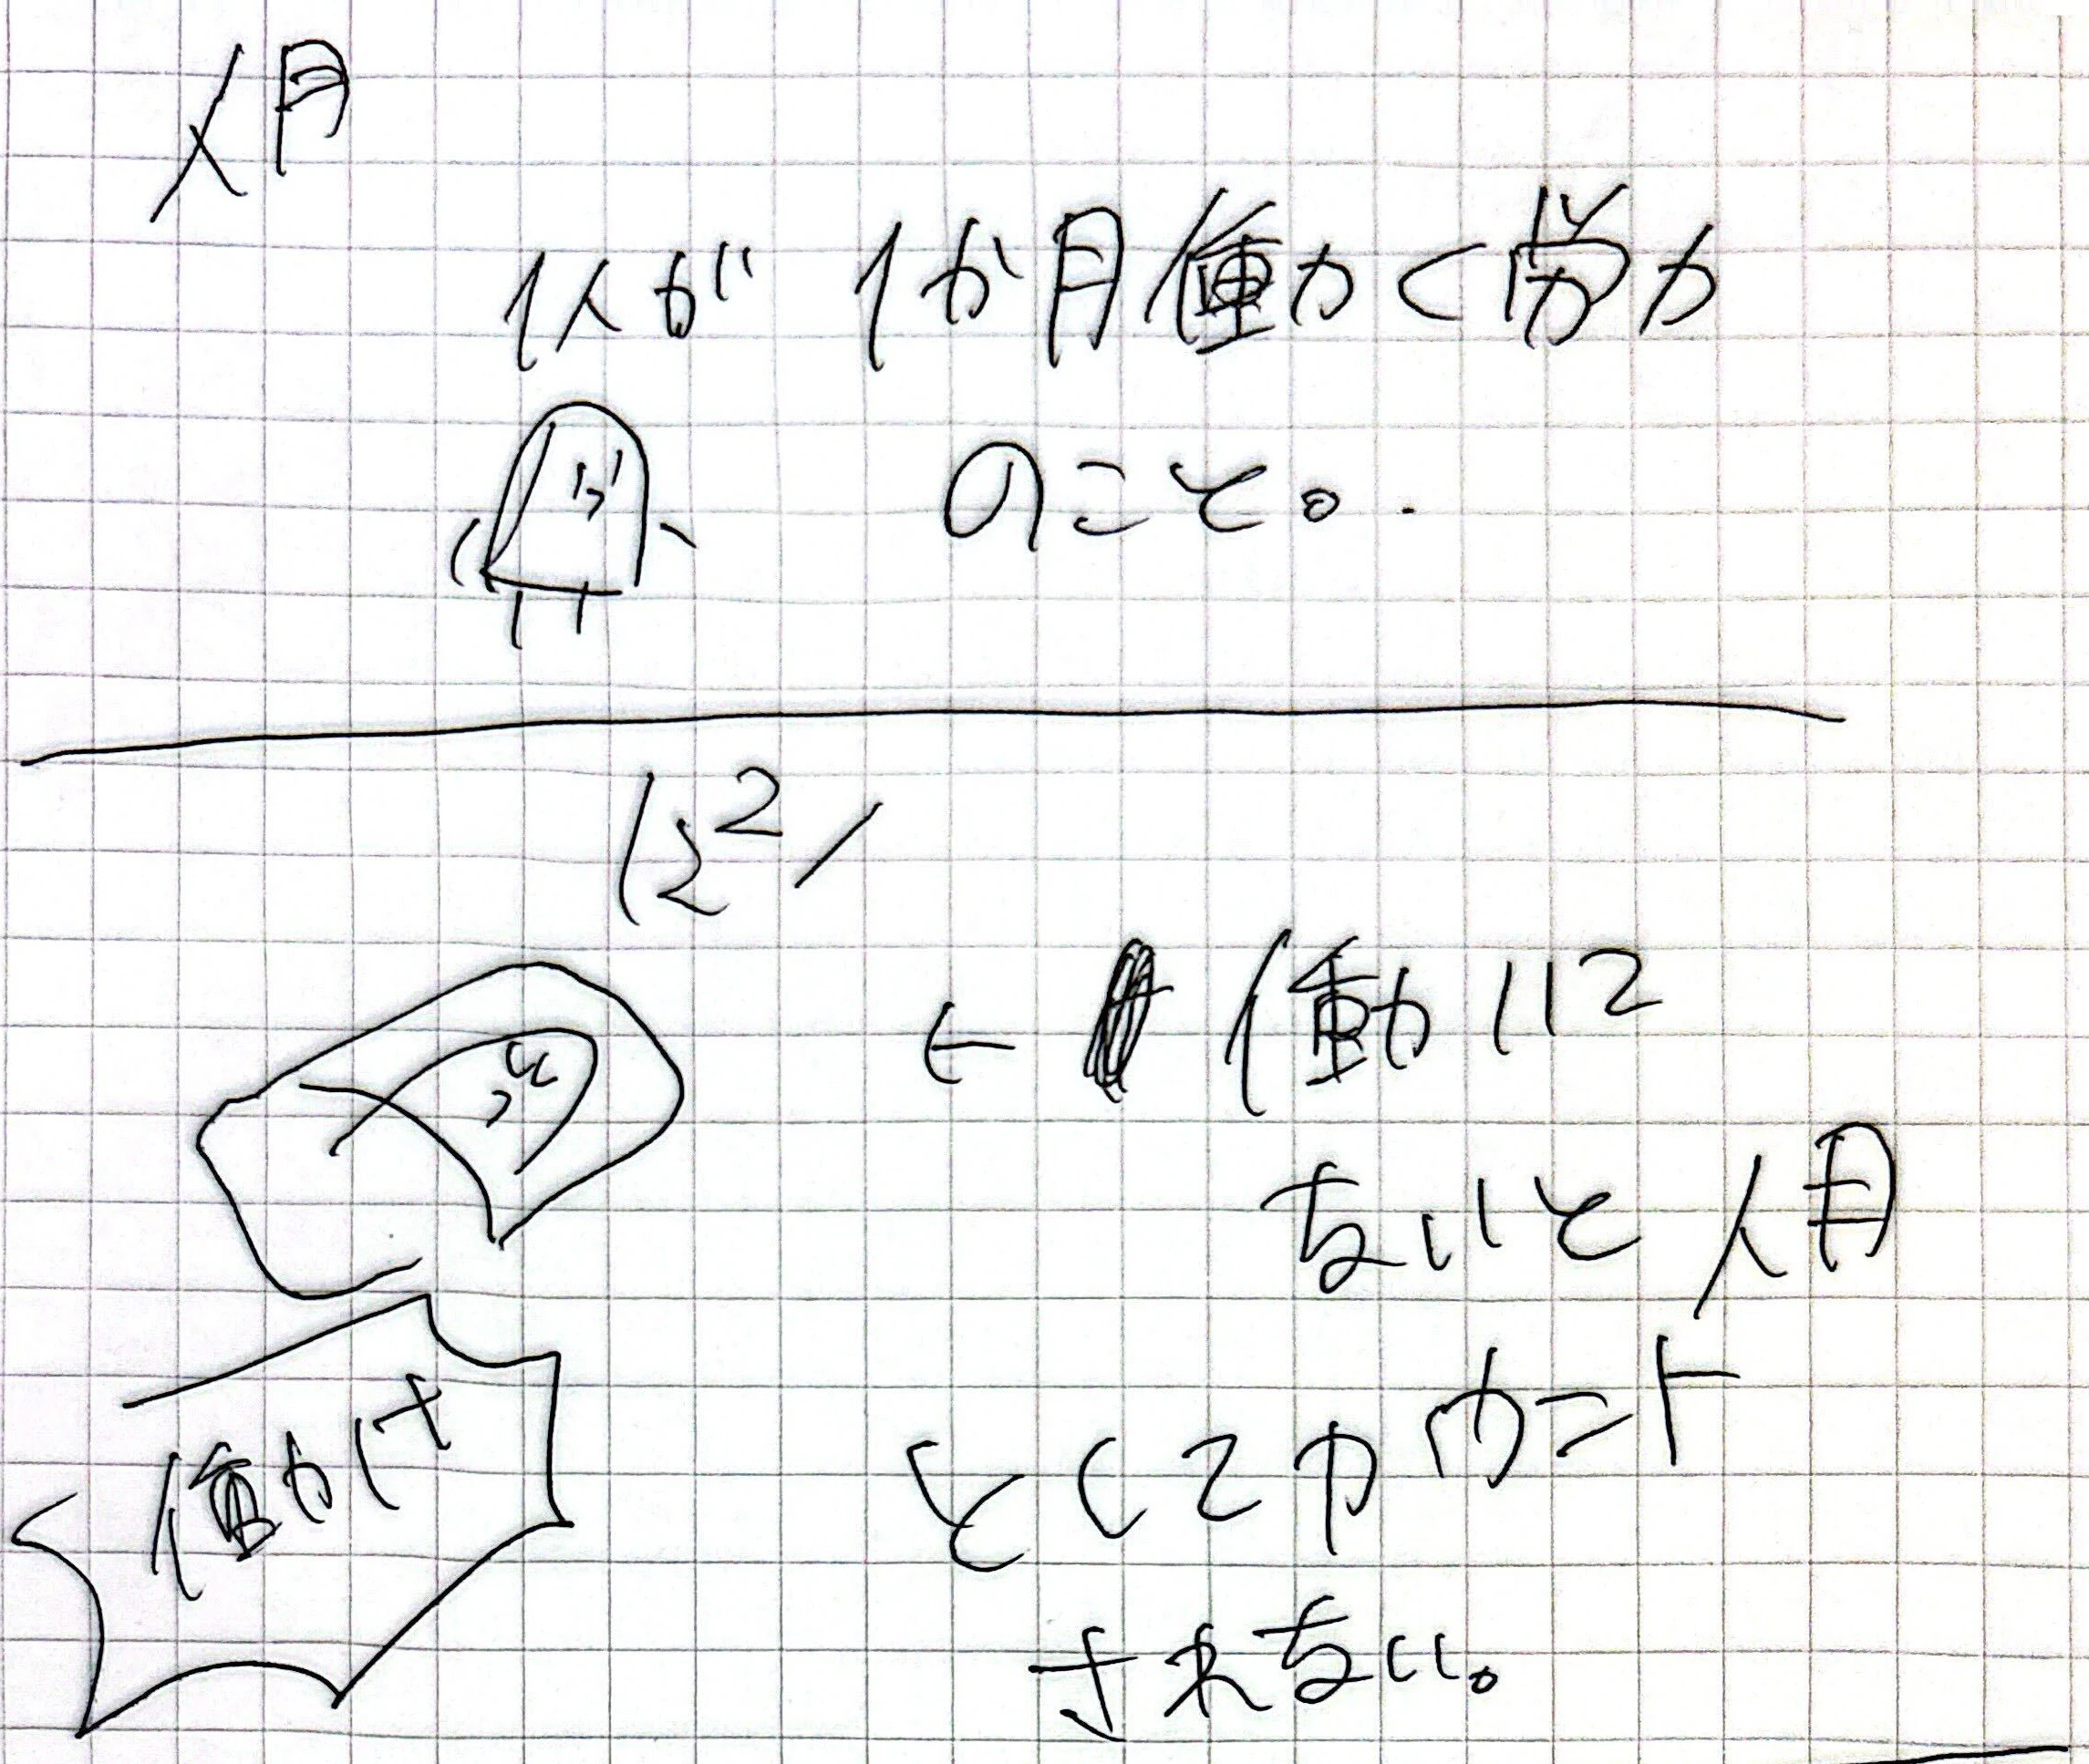 人月
1人が 1か月働く労力
のこと。
← 働いて
ないと人月
働け
としてカウント
されない。